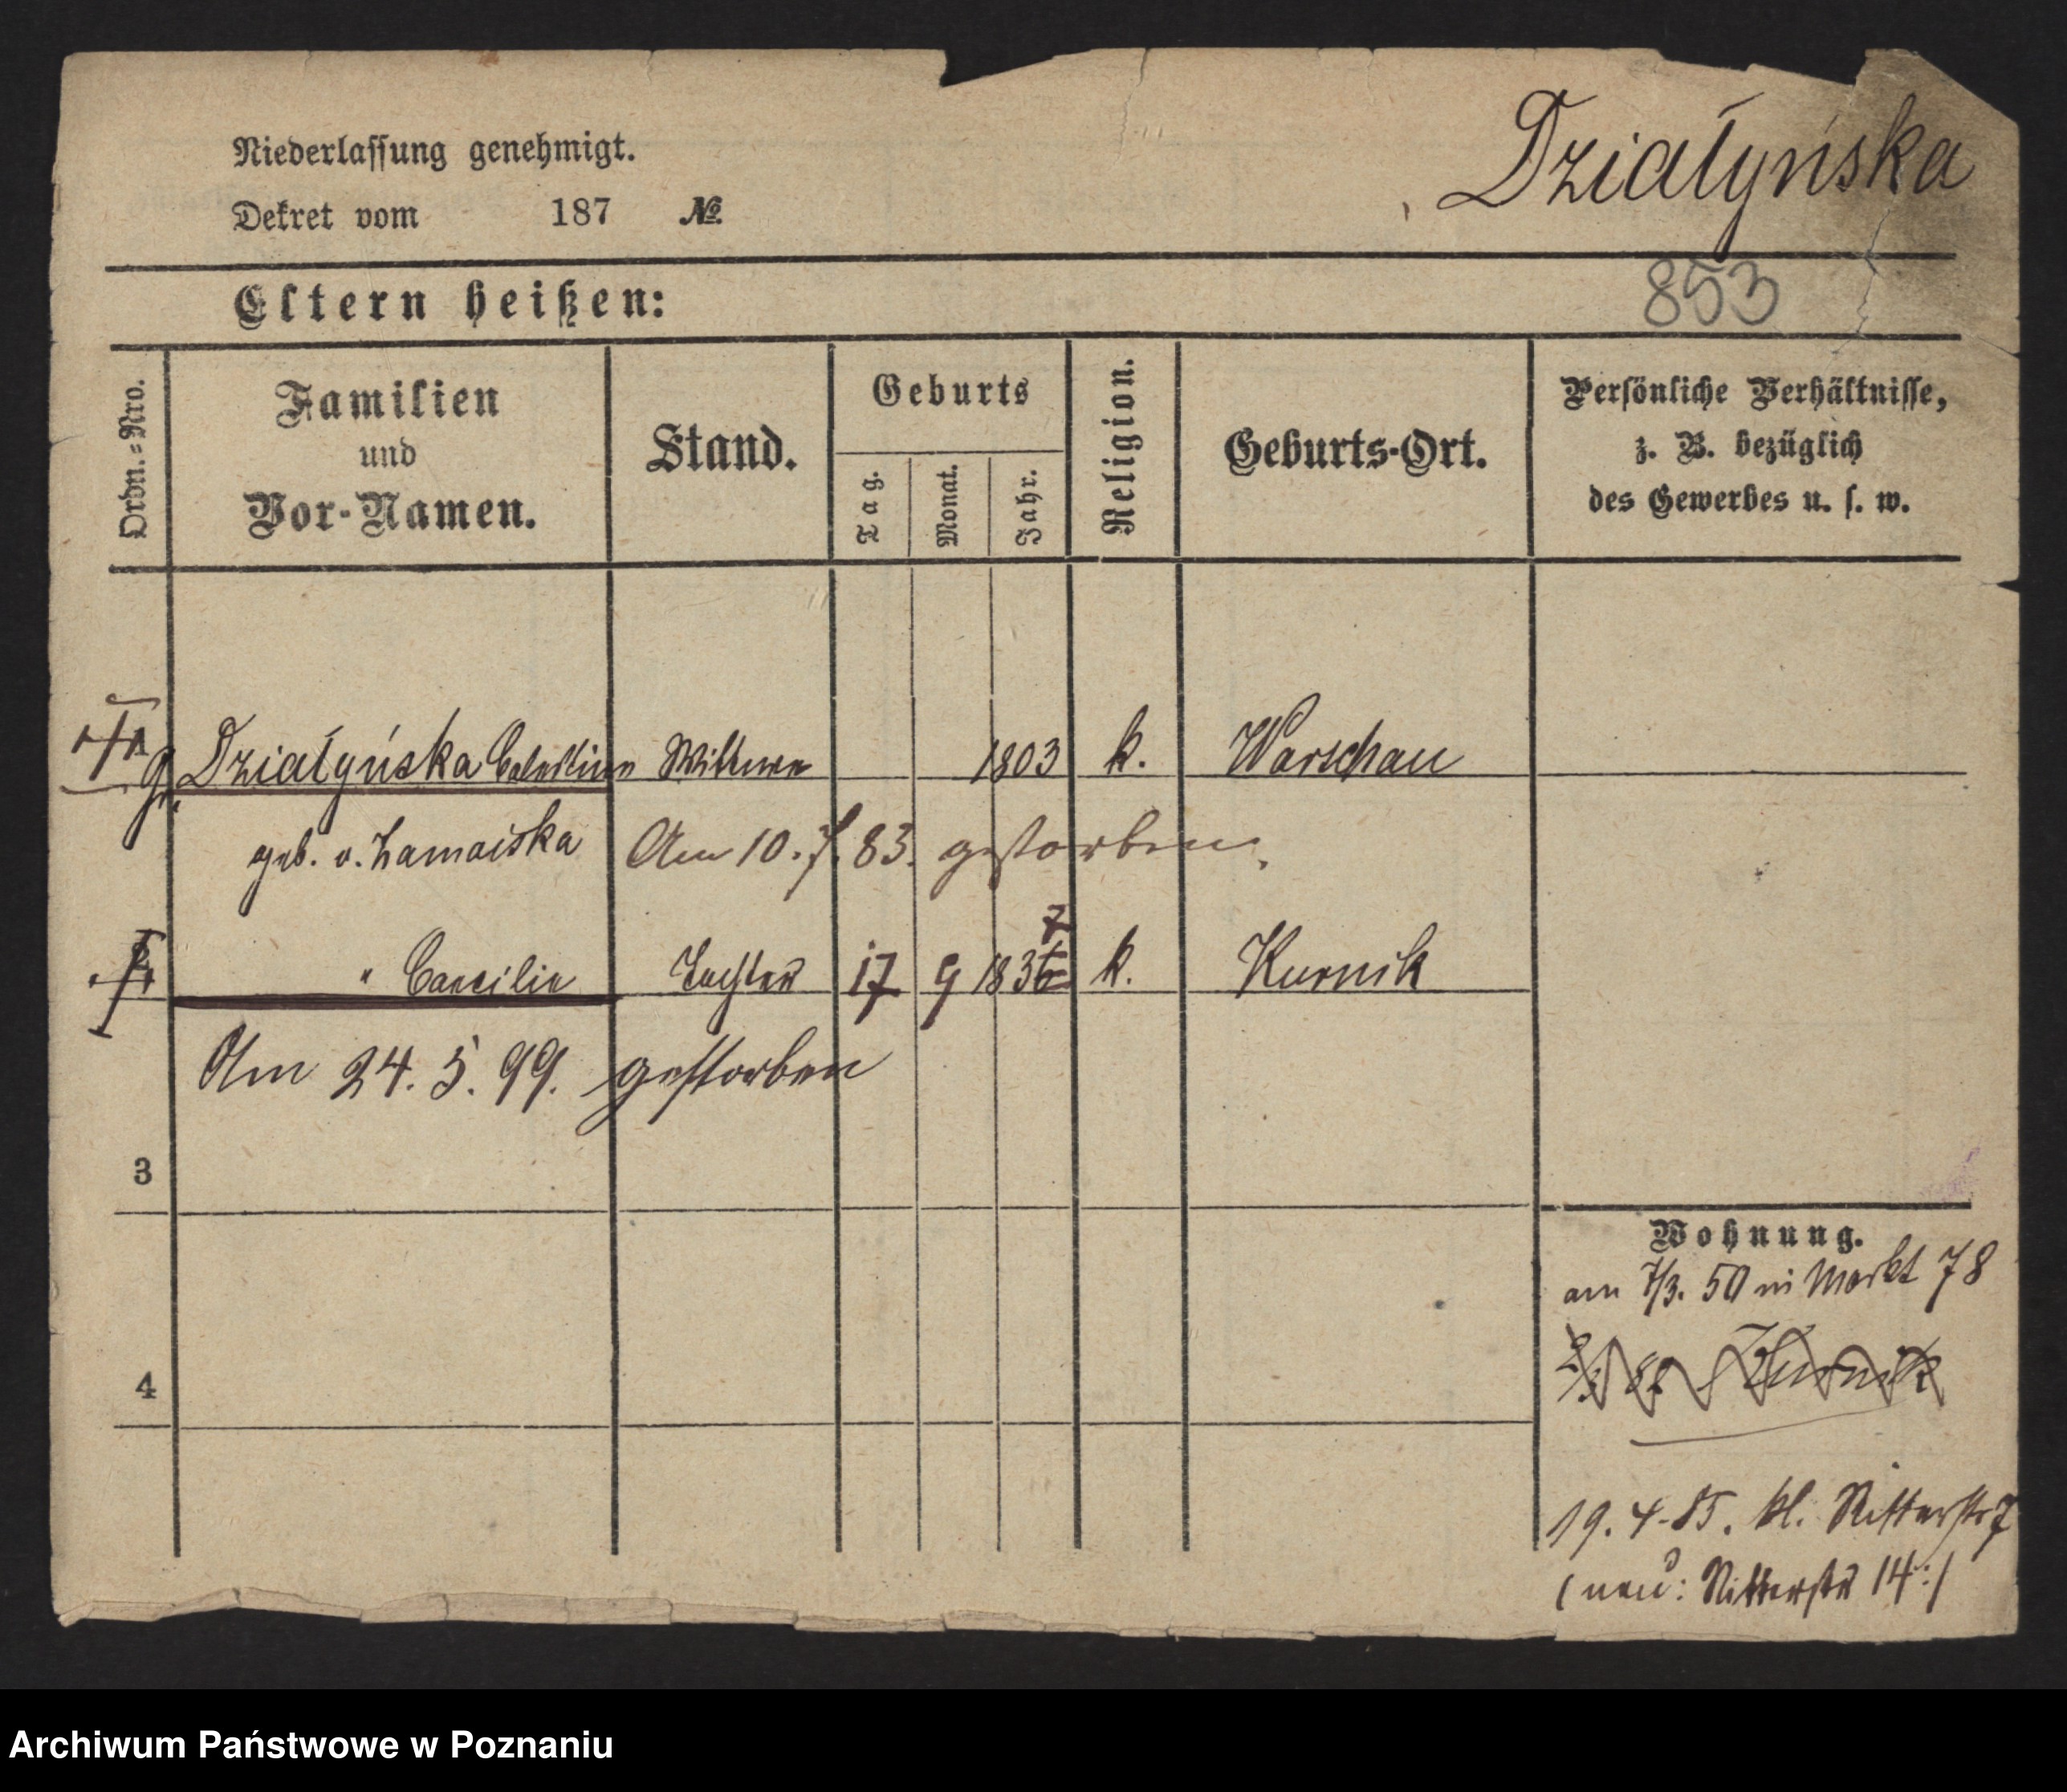 Niederlassung genehmigt.
Działyńska
Dekret vom 187 №
853
Eltern heißen:
Ordn.=Nro.
Familien
und
Vor-Namen.
Stand.
Geburts
Tag.
Monat.
Jahr.
Religion.
Geburts-Ort.
Persönliche Verhältnisse,
z. B. bezüglich
des Gewerbes u. s. w.
Działyńska Celestine Wittwe 1803 k. Warschau
geb. v. Zamoiska Am 10. 7. 83. gestorben.
" Caecilie Tochter 17 9 1836 7 k. Kurnik
Am 24. 5. 99. gestorben
3
Wohnung.
am 7/3. 50 in Markt 78
Kurnik
4
19. 4. 85. kl. Ritterstr 7
(neu: Ritterstr 14:)
Archiwum Państwowe w Poznaniu